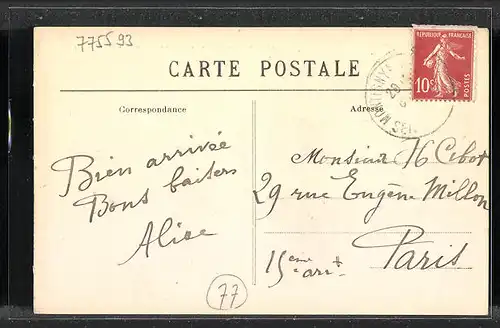 775593
CARTE POSTALE
REPUBLIQUE FRANÇAISE
10c
POSTES
MONTIGNY
Correspondance
Adresse
Bien arrivée
Bons baisers
Alise
77
Monsieur H Cibot
29 rue Eugène Millon
Paris
15ème arrt